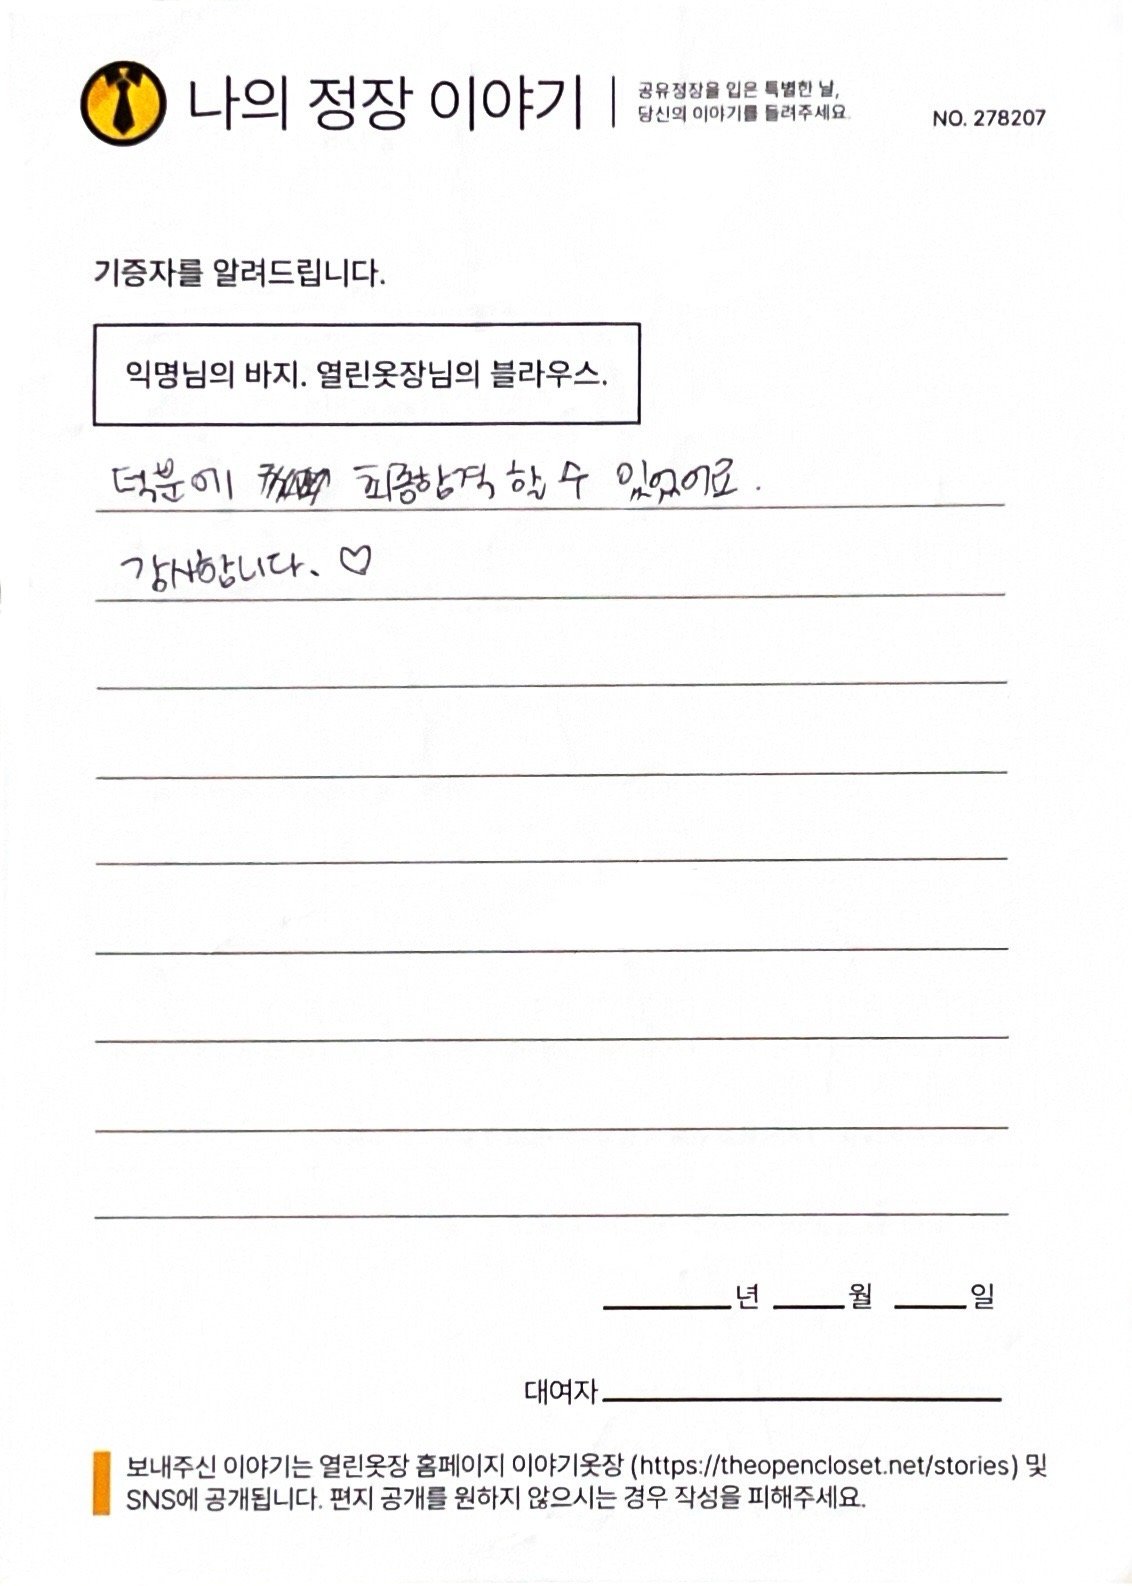 나의 정장 이야기
공유정장을 입은 특별한 날,
당신의 이야기를 들려주세요.
NO. 278207
기증자를 알려드립니다.
익명님의 바지. 열린옷장님의 블라우스.
덕분에 최종합격 할 수 있었어요.
감사합니다. ♡
년 월 일
대여자
보내주신 이야기는 열린옷장 홈페이지 이야기옷장 (https://theopencloset.net/stories) 및
SNS에 공개됩니다. 편지 공개를 원하지 않으시는 경우 작성을 피해주세요.